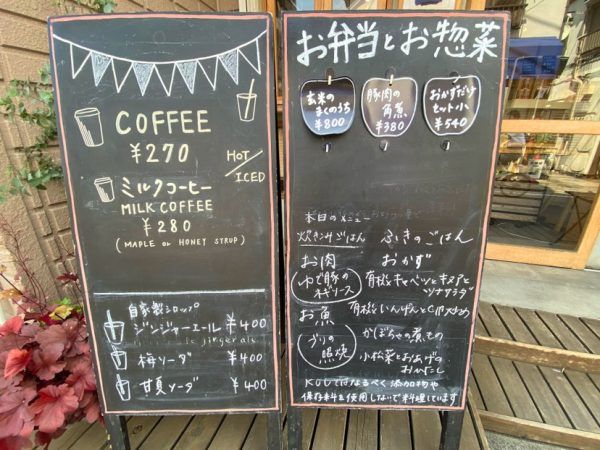 COFFEE
¥270
HOT/ICED
ミルクコーヒー
MILK COFFEE
¥280
(MAPLE or HONEY SYRUP)
自家製シロップ
ジンジャーエール ¥400
梅ソーダ ¥400
甘夏ソーダ ¥400
お弁当とお惣菜
玄米の
まくのうち
¥800
豚肉の
角煮
¥380
おかずだけ
セット小
¥540
本日のメニュー
炊きこみごはん ふきのごはん
お肉 おかず
ゆで豚の
ネギソース
有機キャベツとキヌアと
ツナサラダ
お魚
有機いんげんと
ブリの
照焼
かぼちゃの煮もの
小松菜とおあげの
おかかだし
ではなるべく添加物や
保存料を使用しないで料理しています